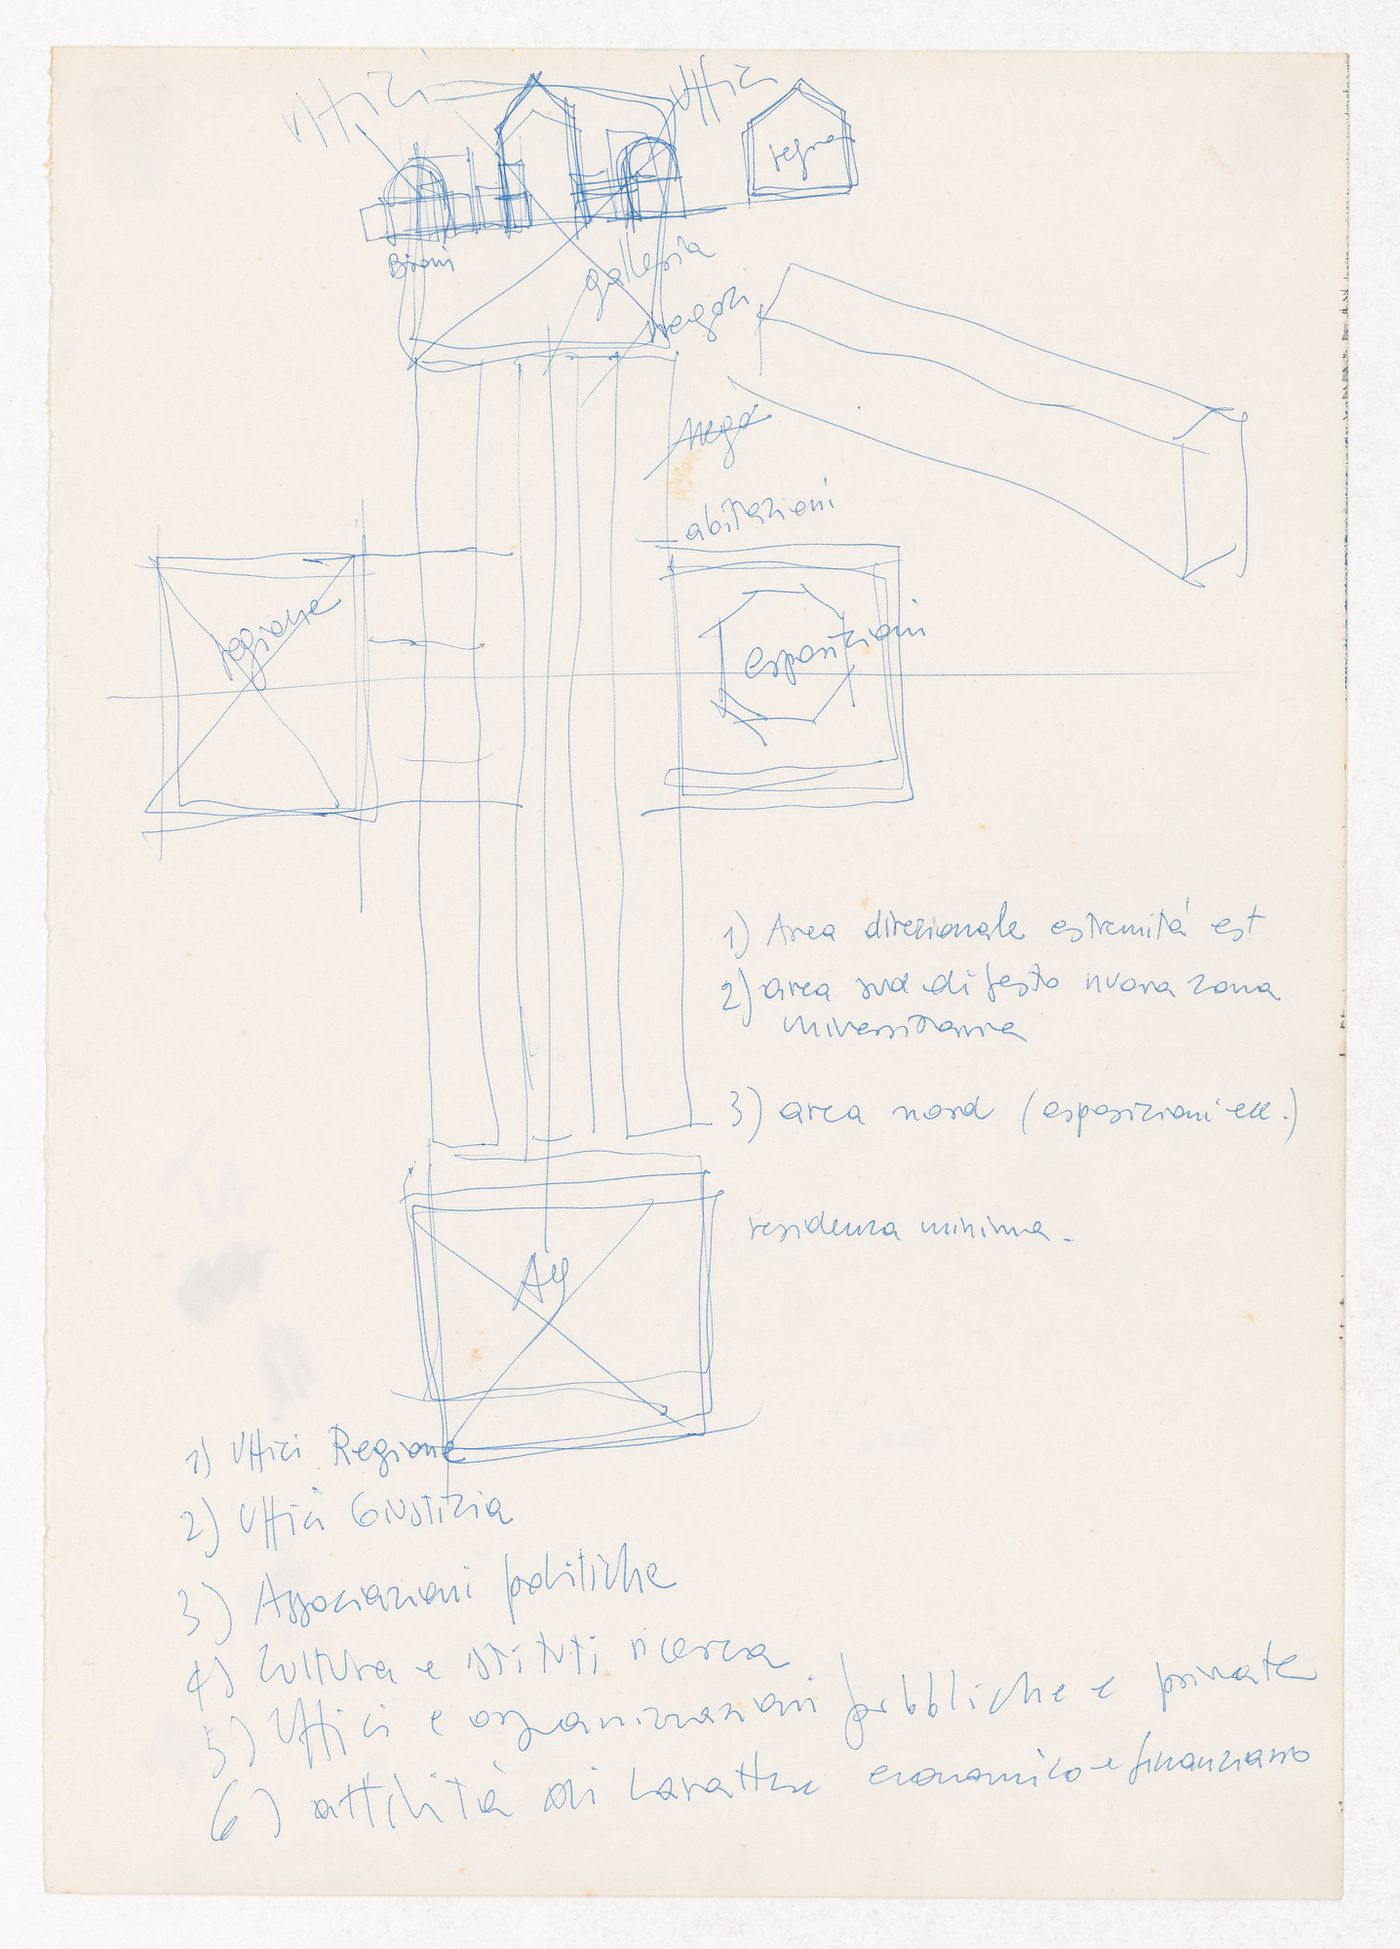 Uffici
Uffici
regione
galleria
negozi
nego
abitazioni
regione
esposizioni
1) Area direzionale estremità est
2) area sud di sesto nuova zona
universitaria
3) area nord (esposizioni ecc.)
residenza minima.
1) Uffici Regione
2) Uffici Giustizia
3) Associazioni politiche
4) Cultura e istituti ricerca
5) Uffici e organizzazioni pubbliche e private
6) attività di carattere economico e finanziario